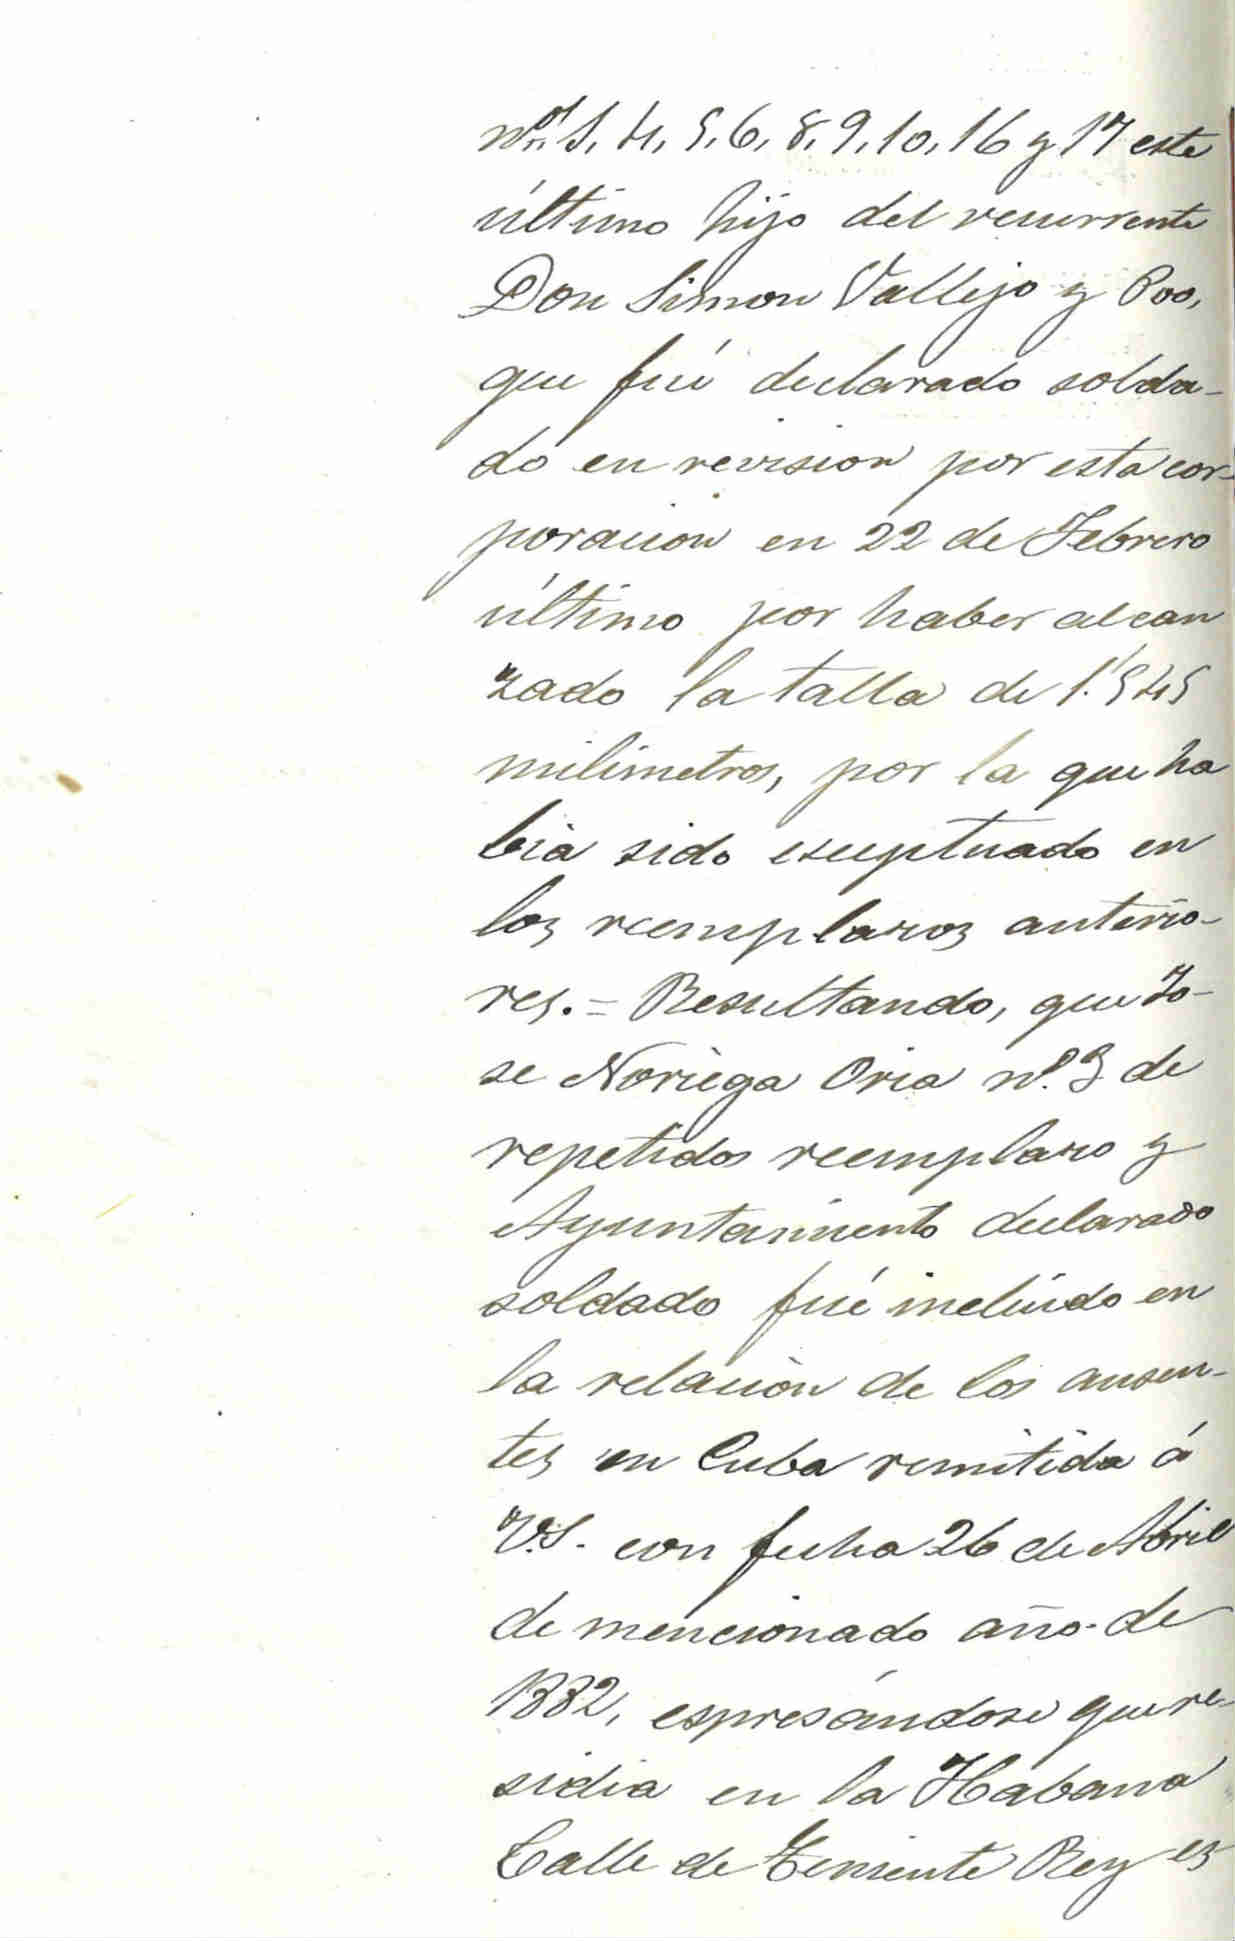 nos. 1, 4, 5, 6, 8, 9, 10, 16 y 17 este
último hijo del recurrente
Don Simon Vallejo y Poo,
que fué declarado solda-
do en revision por esta cor-
poracion en 22 de Febrero
último por haber alcan
zado la talla de 1.'545
milimetros, por la que ha
bia sido esceptuado en
los reemplazos anterio-
res. = Resultando, que Jo-
se Noriega Oria nº. 3 de
repetidos reemplazo y
Ayuntamiento declarado
soldado fué incluido en
la relación de los ausen-
tes en Cuba remitida á
V.S. con fecha 26 de Abril
de mencionado año de
1882, espresándose que re-
sidia en la Habana
Calle de Teniente Rey es